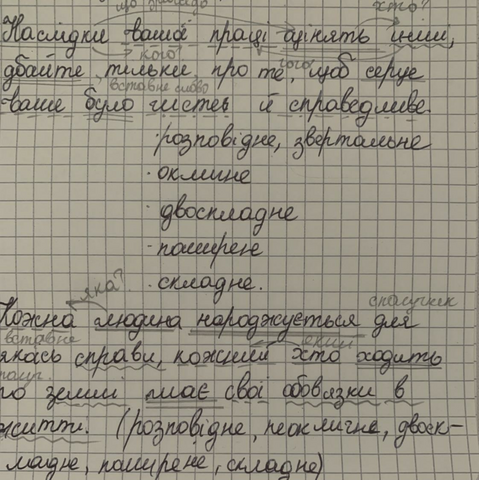 що хто?
Наслідки вашої праці оцінять інші,
кого?
дбайте тільки про те, щоб серце
вставне слово
ваше було чисте й справедливе.
· розповідне, звертальне
· оклине
· двоскладне
· поширене
· складне.
яка? сполучник
Кожна людина народжується для
вставне
якась справи, кожний хто ходить
по землі має свої обов'язки в
житті. (розповідне, неокличне, двоск-
ладне, поширене, складне)